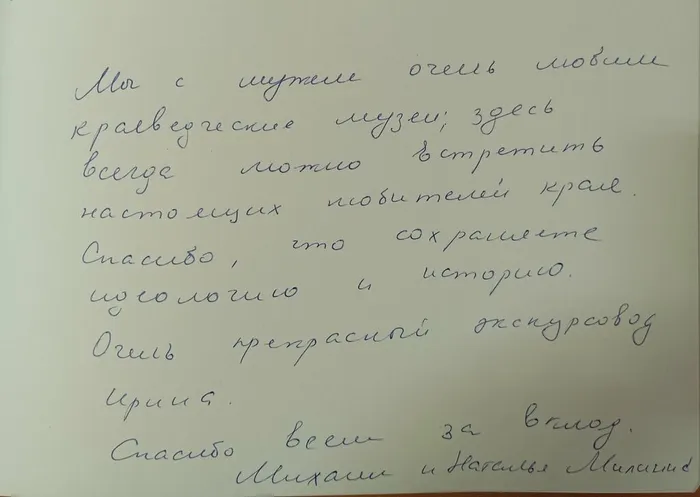 Мы с мужем очень любим
краеведческие музеи; здесь
всегда можно встретить
настоящих любителей края.
Спасибо, что сохраняете
идеологию и историю.
Очень прекрасный экскурсовод
Ирина.
Спасибо всем за вклад.
Михаил и Наталья